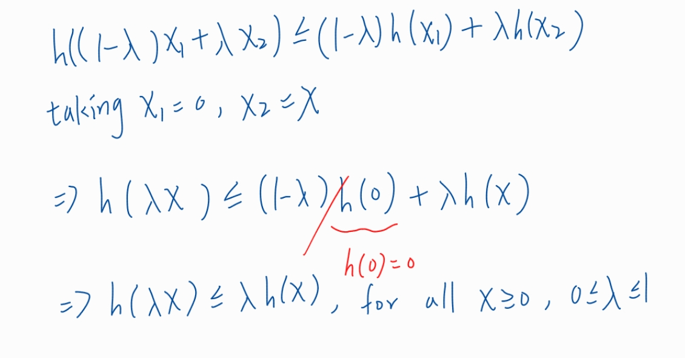 h((1-λ)x₁+λx₂) ≤ (1-λ)h(x₁) + λh(x₂)
taking x₁=0, x₂=x
=> h(λx) ≤ (1-λ)h(0) + λh(x)
h(0)=0
=> h(λx) ≤ λh(x), for all x≥0, 0≤λ≤1